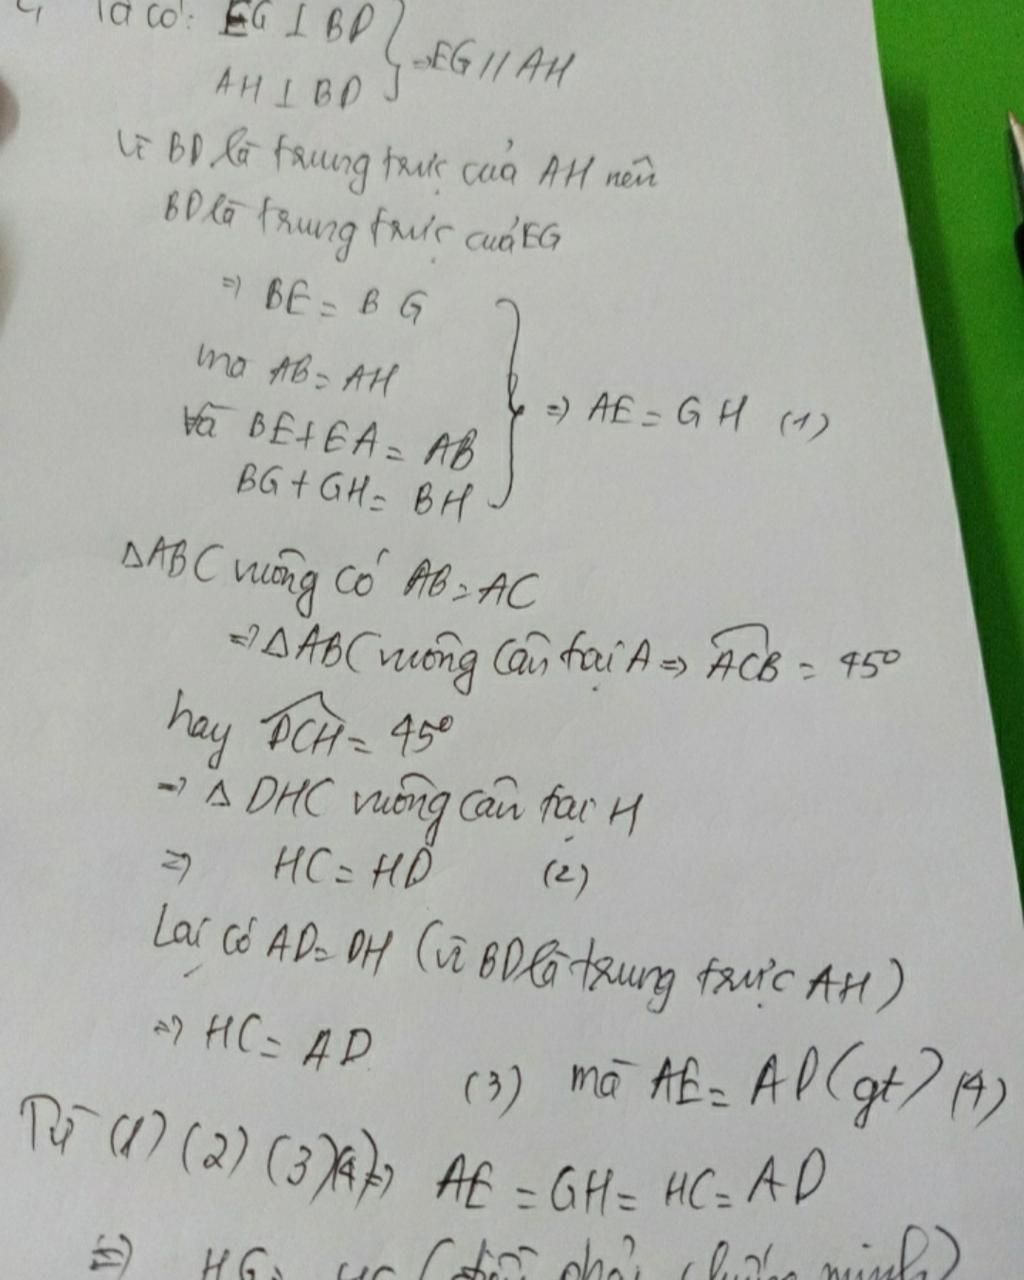 Ta có: EG ⊥ BD
AH ⊥ BD } => EG // AH
Vì BD là trung trực của AH nên
BD là trung trực của EG
=> BE = BG
mà AB = AH
Và BE + EA = AB
BG + GH = BH } => AE = GH (1)
ΔABC vuông có AB = AC
=> ΔABC vuông cân tại A => ACB = 45°
hay DCH = 45°
=> Δ DHC vuông cân tại H
=> HC = HD (2)
Lại có AD = DH (vì BD là trung trực AH)
=> HC = AD (3) mà AE = AD (gt) (4)
Từ (1) (2) (3) (4) => AE = GH = HC = AD
=> HG = HC (điều phải chứng minh)